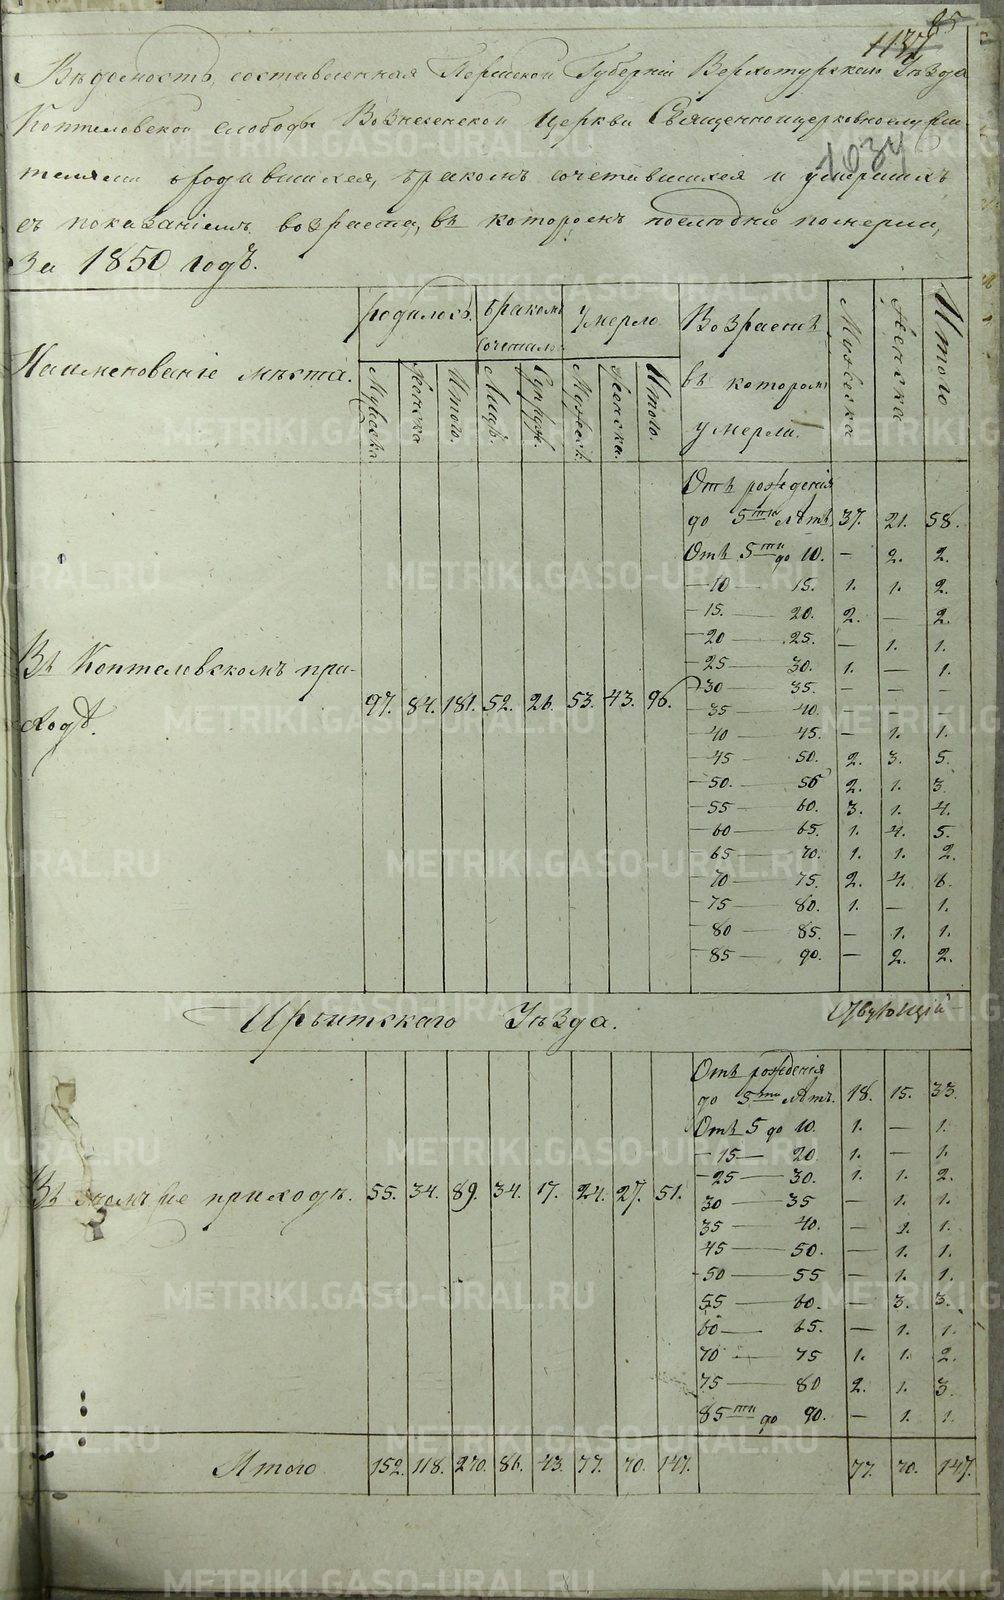 85
1137
1034
Вѣдомость, составленная Пермской Губерніи Верхотурскаго Уѣзда
Коптеловской слободы Вознесенской Церкви Священноцерковнослужи-
телями о родившихся, бракомъ сочетавшихся и умершихъ
съ показаніемъ возраста, въ которомъ послѣдніе померли,
За 1850 годъ.
Наименованіе мѣста. родилось. бракомъ сочетало умерло Возрастъ въ котором умерли. Мужеска Женска Итого
Мужеска. Женска Итого. Лицъ. Супруж. Мужеск. Женска. Итого.
Отъ рожденія
до 5ти лѣтъ 37. 21. 58.
Отъ 5ти до 10. — 2. 2.
— 10 — 15. 1. 1. 2.
— 15. — 20. 2. — 2.
— 20 — 25. — 1. 1.
— 25 — 30. 1. — 1.
— 30 — 35. — — —
— 35 — 40. — — —
— 40 — 45. — 1. 1.
— 45 — 50. 2. 3. 5.
— 50. — 55 2. 1. 3.
— 55 — 60. 3. 1. 4.
— 60 — 65. 1. 4. 5.
— 65 — 70. 1. 1. 2.
— 70 — 75. 2. 4. 6.
— 75 — 80. 1. — 1.
— 80 — 85. — 1. 1.
— 85 — 90. — 2. 2.
Въ Коптеловскомъ при-
ходѣ. 97. 84. 181. 52. 26. 53. 43. 96.
Ирбитскаго Уѣзда.
Отъ рожденія
до 5ти лѣтъ. 18. 15. 33.
Отъ 5 до 10. 1. — 1.
— 15 — 20 1. — 1.
— 25 — 30. 1. 1. 2.
30 — 35 — 1. 1.
35 — 40. — 1. 1.
45 — 50. — 1. 1.
50 — 55 — 1. 1.
55 — 60. — 3. 3.
60 — 65. — 1. 1.
70 — 75 1. 1. 2.
75 — 80 2. 1. 3.
85ти до 90. — 1. 1.
Въ томъ же приходѣ. 55. 34. 89. 34. 17. 24. 27. 51.
Итого 152. 118. 270. 86. 43. 77. 70. 147. 77. 70. 147.
METRIKI.GASO-URAL.RU